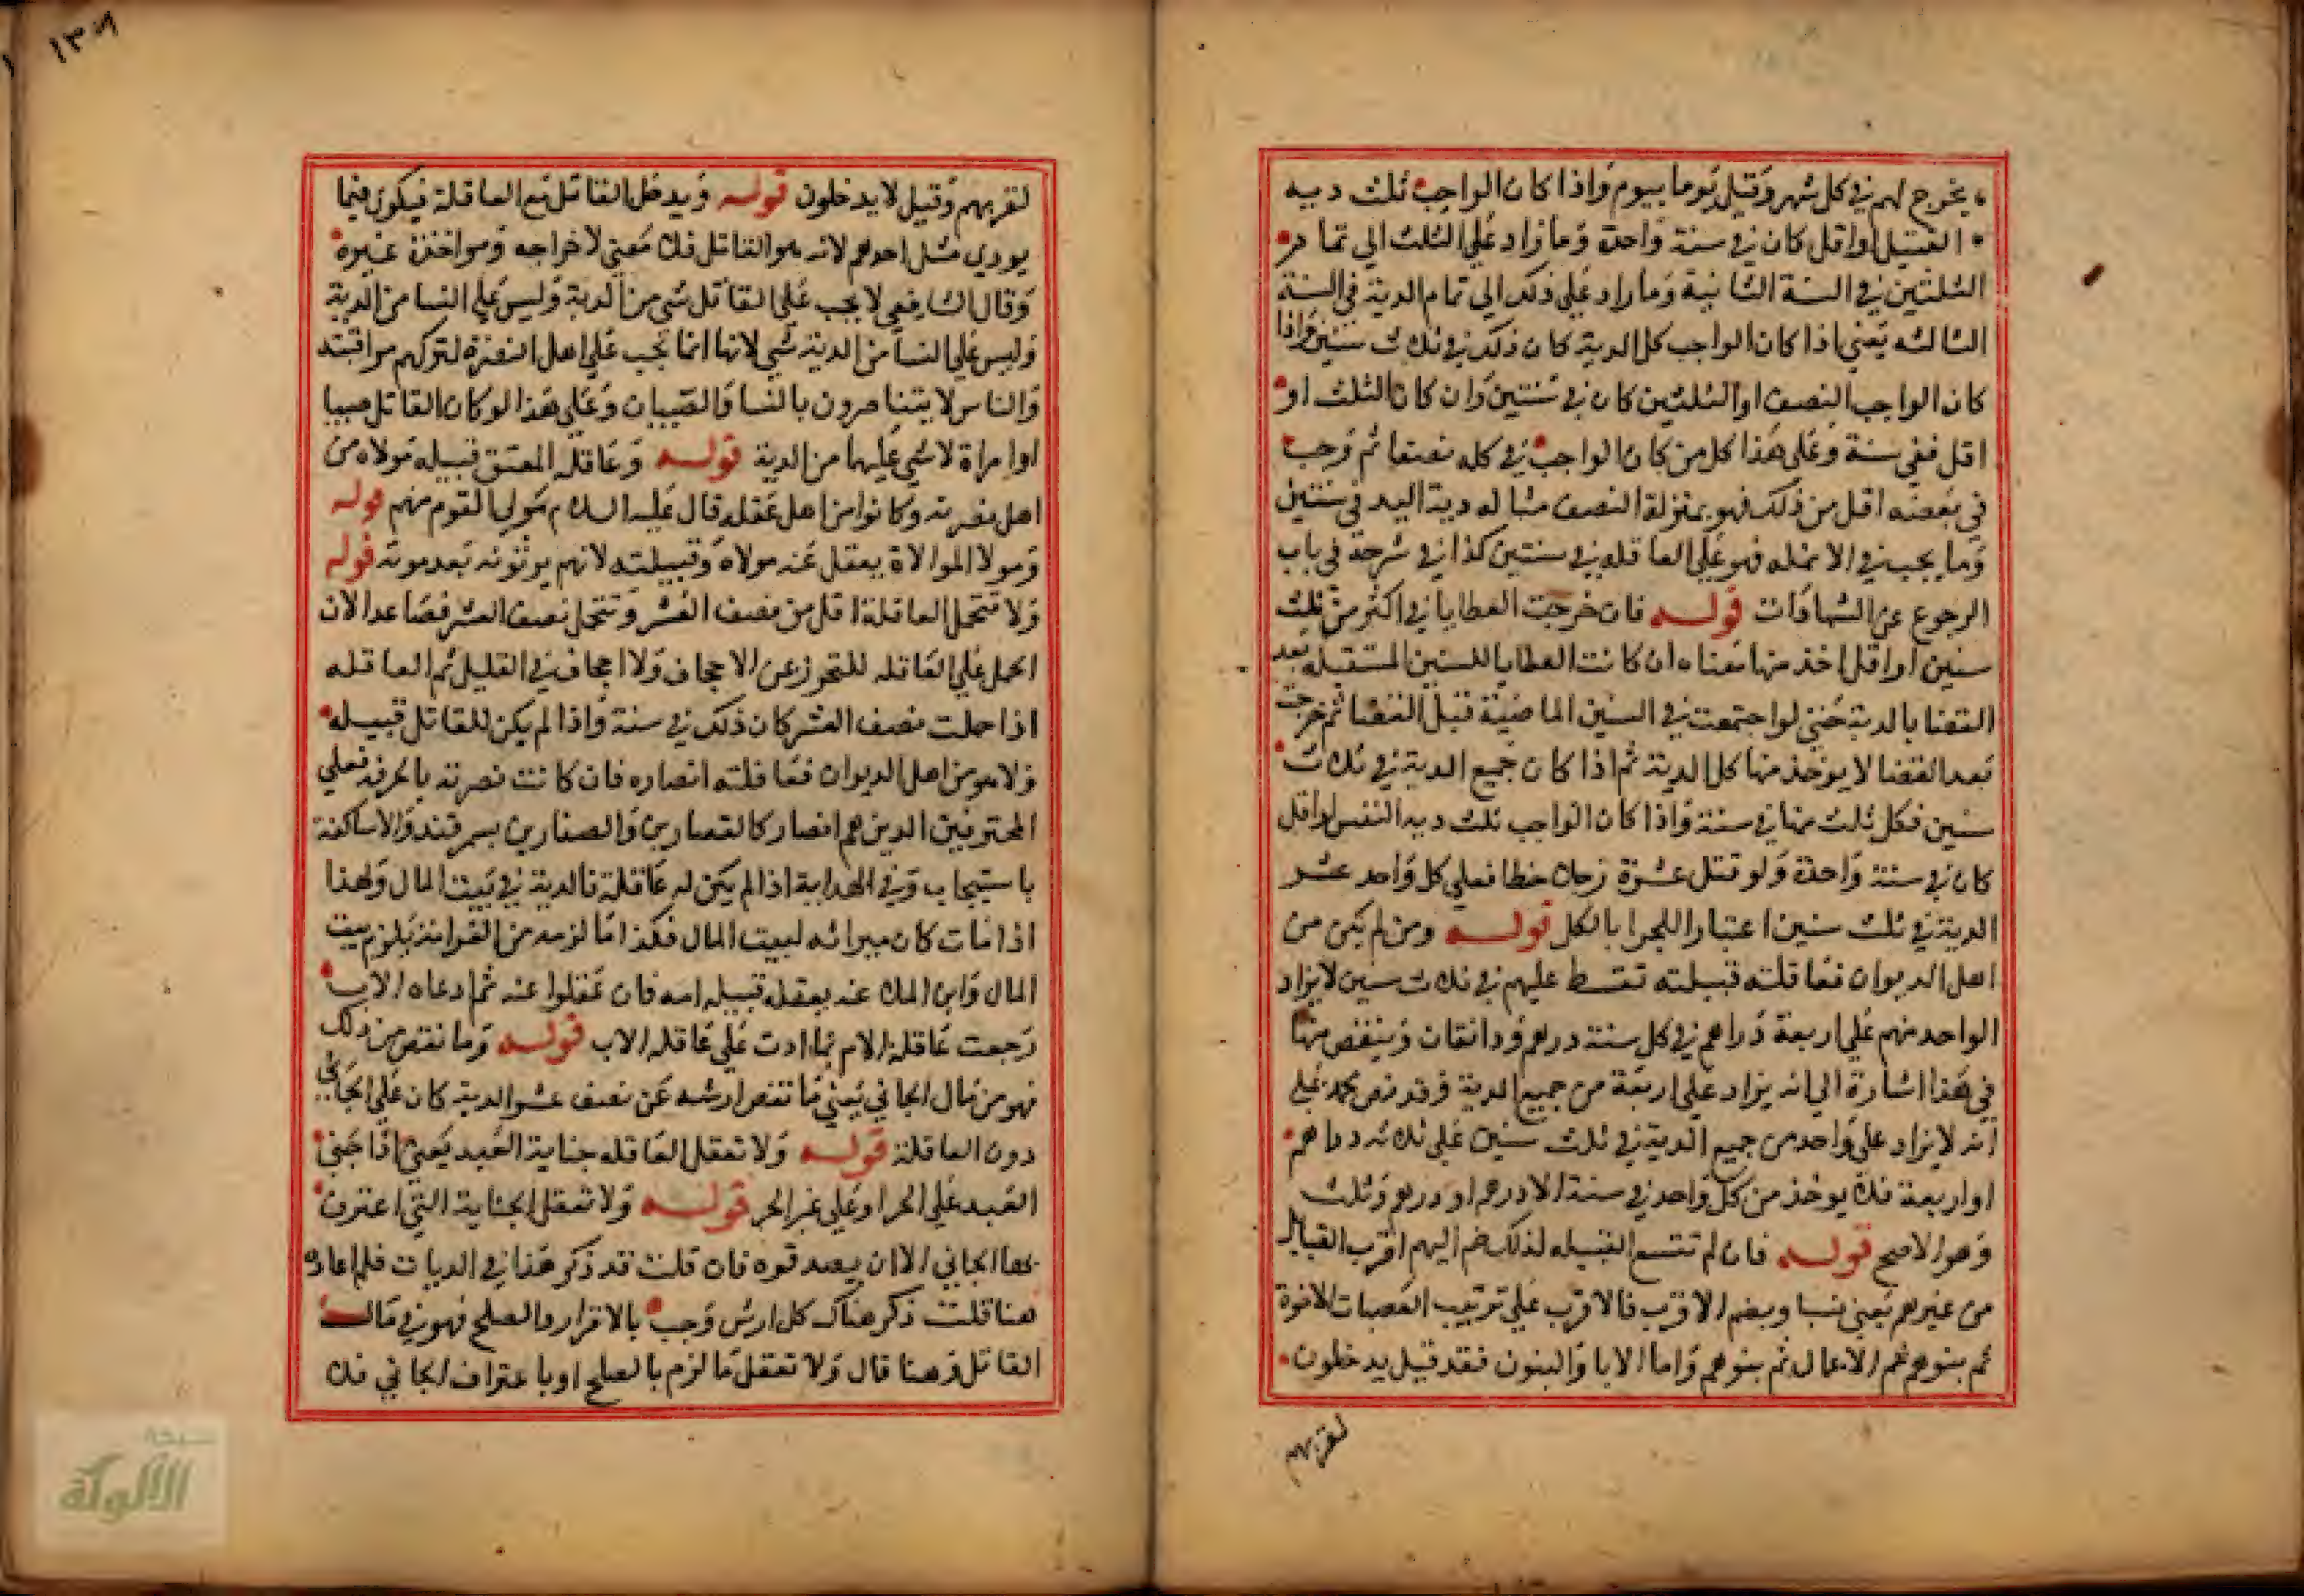 يخرج لهم في كل شهر وقيل يوما بيوم واذا كان الواجب ثلث دية
القتيل او اقل كان في سنة واحدة وما زاد علي الثلث الي تمام
الثلثين في السنة الثانية وما زاد علي ذلك الي تمام الدية في السنة
الثالثه يعني اذا كان الواجب كل الدية كان ذلك في ثلاث سنين واذا
كان الواجب النصف او الثلثين كان في سنتين وان كان الثلث او
اقل ففي سنة وعلي هذا كل من كان الواجب في كله نصفا ثم وجب
في بعضه اقل من ذلك فهو بمنزلة النصف مثاله دية اليد في سنتين
وما يجب في الانمله فهو علي العاقله في سنتين كذا في شرحه في باب
الرجوع عن الشهادات قوله فان خرجت العطايا في اكثر من ثلث
سنين او اقل اخذ منها معناه ان كانت العطايا للسنين المستقبله بعد
القضا بالدية حتي لو اجتمعت في السنين الماضية قبل القضا ثم خرجت
بعد القضا لا يوخذ منها كل الدية ثم اذا كان جميع الدية في ثلاث
سنين فكل ثلث منها في سنة واذا كان الواجب ثلث دية النفس او اقل
كان في سنة واحدة ولو قتل عشرة رجلا خطا فعلي كل واحد عشر
الدية في ثلث سنين اعتبارا للجزا بالكل قوله ومن لم يكن من
اهل الديوان فعاقلته قبيلته تقسط عليهم في ثلاث سنين لا يزاد
الواحد منهم علي اربعة دراهم في كل سنة درهم ودانقان وينقص منها
في هذا اشارة الي انه يزاد علي اربعة من جميع الدية وقد نص محمد علي
انه لا يزاد علي واحد من جميع الدية في ثلث سنين علي ثلاثه دراهم
او اربعة فلا يوخذ من كل واحد في سنة الا درهم او درهم وثلث
وهو الاصح قوله فان لم تتسع القبيله لذلك ضم اليهم اقرب القبايل
من غيرهم يعني نسبا ويضم الاقرب فالاقرب علي ترتيب العصبات الاخوة
ثم بنوهم ثم الاعمام ثم بنوهم واما الابا والبنون فقد قيل يدخلون
لقربهم
١٣٠٩
لقربهم وقيل لا يدخلون قوله ويدخل القاتل مع العاقلة فيكون فيما
يودي مثل احدهم لانه هو القاتل فلا معني لاخراجه ومواخذة غيره
وقال الشافعي لا يجب علي القاتل شي من الدية وليس علي النسا من الدية
وليس علي النسا من الدية شي لانها انما تجب علي اهل النصرة لتركهم مراقبته
والناس لا يتناصرون بالنسا والصبيان وعلي هذا لو كان القاتل صبيا
او امراة لا شي عليهما من الدية قوله وعاقلة المعتق قبيله مولاه من
اهل نصرته وكانوا من اهل عقله قال عليه السلام مولي القوم منهم قوله
ومولا الموالاة يعقل عنه مولاه وقبيلته لانهم يرثونه بعد موته قوله
ولا تتحمل العاقلة اقل من نصف العشر وتتحمل نصف العشر فصاعدا لان
الحمل علي العاقله للتحرز عن الاجحاف ولا اجحاف في القليل ثم العاقله
اذا حملت نصف العشر كان ذلك في سنة واذا لم يكن للقاتل قبيله
ولا هو من اهل الديوان فعاقلته انصاره فان كانت نصرته بالحرفه فعلي
المحترفين الذين هم انصار كالقصارين والصفارين بسمرقند والاساكفة
باستيجاب وفي الهداية اذا لم يكن له عاقلة فالدية في بيت المال ولهذا
اذا مات كان ميراثه لبيت المال فكذا ما لزمه من الغرامة يلزم بيت
المال وابن الملاعنه يعقله قبيله امه فان عقلوا عنه ثم ادعاه الاب
رجعت عاقلة الام بما ادت علي عاقله الاب قوله وما نقص من ذلك
فهو من مال الجاني يعني ما نقص ارشه عن نصف عشر الدية كان علي الجاني
دون العاقلة قوله ولا تعقل العاقله جناية العبد يعني اذا جني
العبد علي الحر او علي غير الحر قوله ولا تعقل الجناية التي اعترف
بها الجاني الا ان يصدقوه فان قلت قد ذكر هذا في الديات فلم اعاده
هنا قلت ذكر هناك كل ارش وجب بالاقرار والصلح فهو في مال
القاتل وهنا قال ولا تعقل ما لزم بالصلح او باعتراف الجاني فلا
شبكة
الألوكة